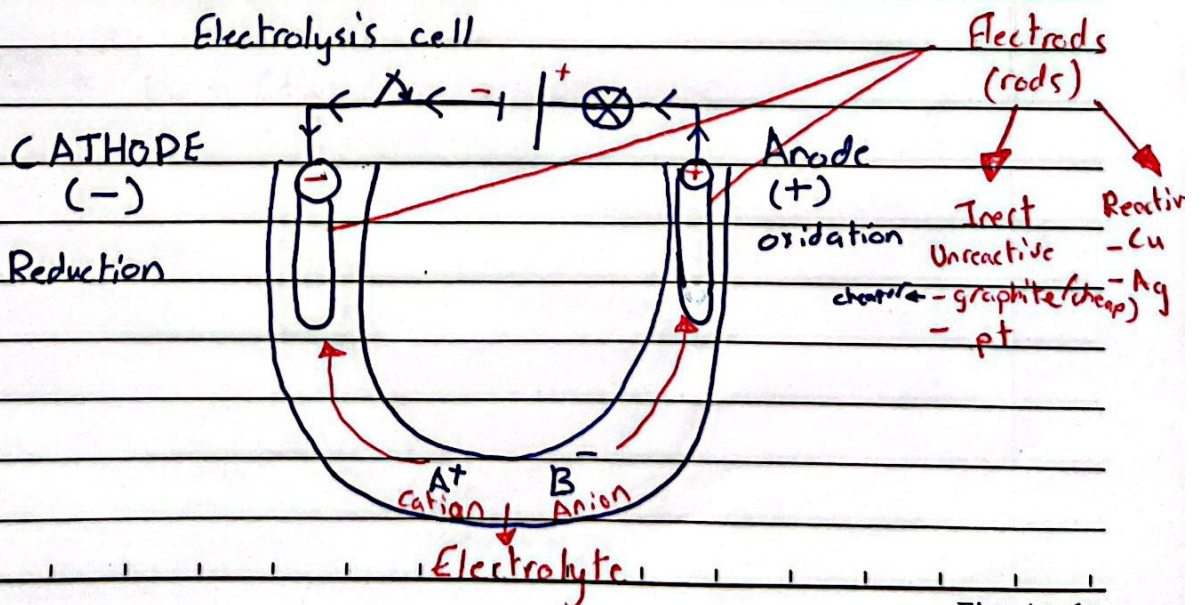 Electrolysis cell
Electrods
(rods)
-
+
CATHODE
(-)
Reduction
-
+
Anode
(+)
oxidation
Inert
Unreactive
cheaper ← - graphite (cheap)
- pt
Reactiv
- Cu
- Ag
A+
B-
Cation
Anion
Electrolyte